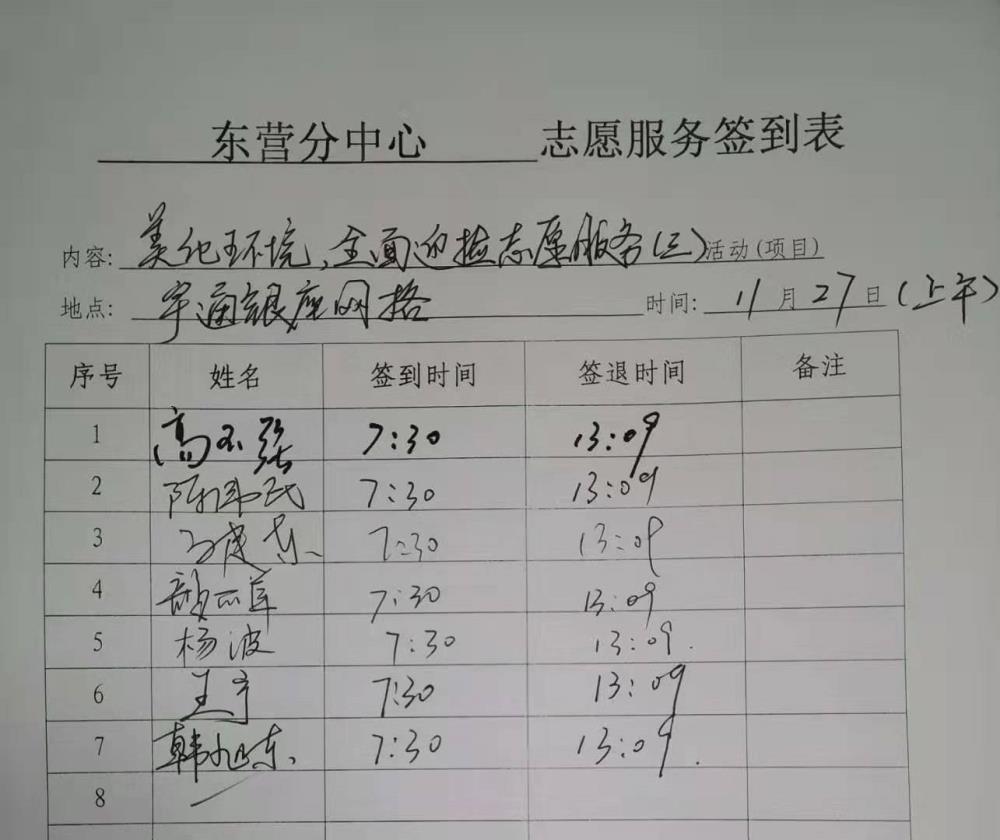 东营分中心 志愿服务签到表
内容: 美化环境、全面迎检志愿服务(三)活动(项目)
地点: 宇通银座网格 时间: 11月27日(上午)
序号 姓名 签到时间 签退时间 备注
1 高玉强 7:30 13:09
2 7:30 13:09
3 7:30 13:09
4 7:30 13:09
5 杨波 7:30 13:09.
6 王宁 7:30 13:09
7 韩旭东 7:30 13:09.
8